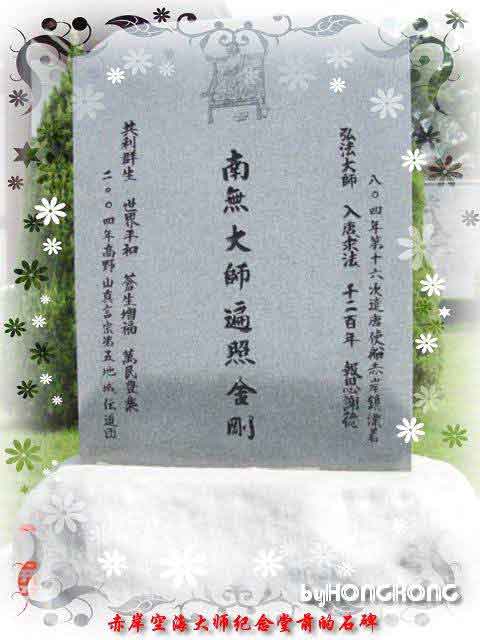 八〇四年第十六次遣唐使船赤岸鎮漂着
弘法大師 入唐求法 千二百年 報恩謝德
南無大師遍照金剛
共利群生 世界平和 蒼生増福 萬民豊楽
二〇〇四年高野山真言宗第五地域伝道団
byHONGKONG
赤岸空海大师纪念堂前的石碑